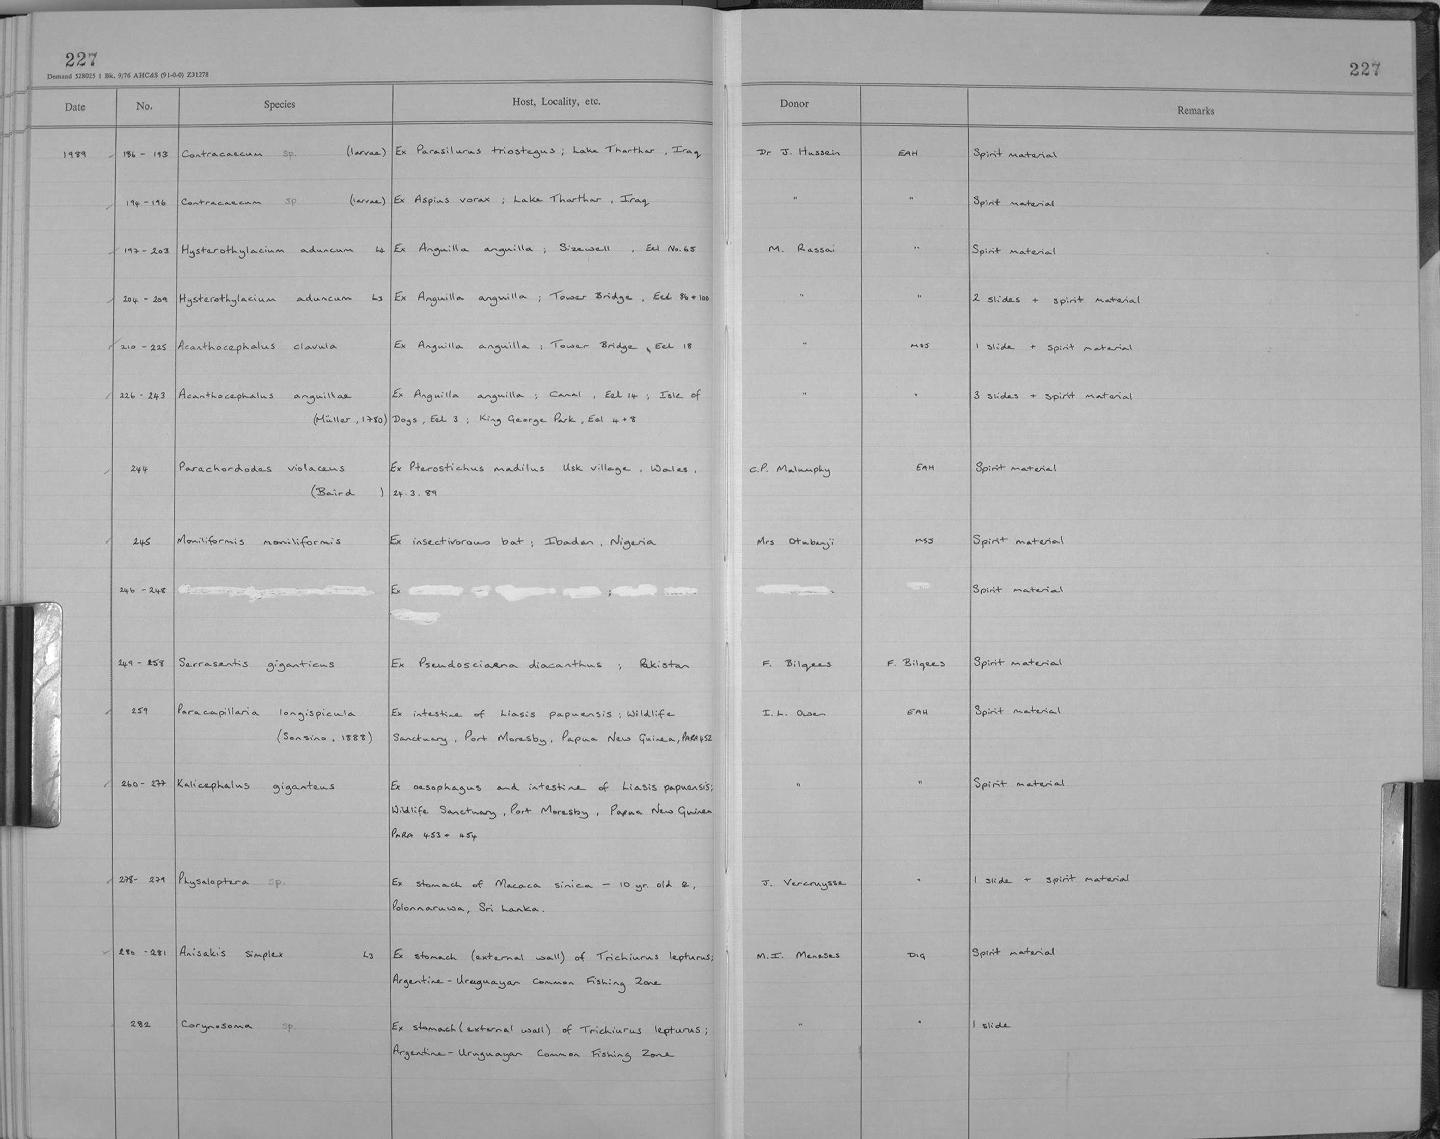 227
227
Demand 528025 1 Bk. 9/76 AHC&S (91-0-0) Z31278
Date No. Species Host, Locality, etc. Donor Remarks
1989 186 - 193 Contracaecum sp. (larvae) Ex Parasilurus triostegus ; Lake Tharthar , Iraq Dr J. Hussein EAH Spirit material
194 - 196 Contracaecum sp (larvae) Ex Aspius vorax ; Lake Tharthar , Iraq " " Spirit material
197 - 203 Hysterothylacium aduncum L4 Ex Anguilla anguilla ; Sizewell , Eel No. 65 M. Rassai " Spirit material
204 - 209 Hysterothylacium aduncum L3 Ex Anguilla anguilla ; Tower Bridge , Eel 86 + 100 " " 2 slides + spirit material
210 - 225 Acanthocephalus clavula Ex Anguilla anguilla ; Tower Bridge , Eel 18 " MSJ 1 slide + spirit material
226 - 243 Acanthocephalus anguillae Ex Anguilla anguilla ; Canal , Eel 14 ; Isle of " " 3 slides + spirit material
(Müller , 1780) Dogs , Eel 3 ; King George Park , Eel 4 + 8
244 Parachordodes violaceus Ex Pterostichus madilus Usk village , Wales , C.P. Malumphy EAH Spirit material
(Baird ) 24 . 3 . 89
245 Moniliformis moniliformis Ex insectivorous bat ; Ibadan , Nigeria Mrs Otubanji MSJ Spirit material
246 - 248 Ex ; Spirit material
249 - 258 Serrasentis giganticus Ex Pseudosciaena diacanthus ; Pakistan F. Bilqees F. Bilqees Spirit material
259 Paracapillaria longispicula Ex intestine of Liasis papuensis ; Wildlife I. L. Owen EAH Spirit material
(Sonsino , 1888) Sanctuary , Port Moresby , Papua New Guinea , PARA 452
260 - 277 Kalicephalus giganteus Ex oesophagus and intestine of Liasis papuensis; " " Spirit material
Wildlife Sanctuary , Port Moresby , Papua New Guinea
PARA 453 + 454
278- 279 Physaloptera sp. Ex stomach of Macaca sinica - 10 yr. old , J. Vercruysse " 1 slide + spirit material
Polonnaruwa, Sri Lanka.
280 - 281 Anisakis simplex L3 Ex stomach (external wall) of Trichiurus lepturus; M. I. Meneses DIG Spirit material
Argentine - Uruguayan Common Fishing Zone
282 Corynosoma sp. Ex stomach (external wall) of Trichiurus lepturus ; " " 1 slide
Argentine - Uruguayan Common Fishing Zone